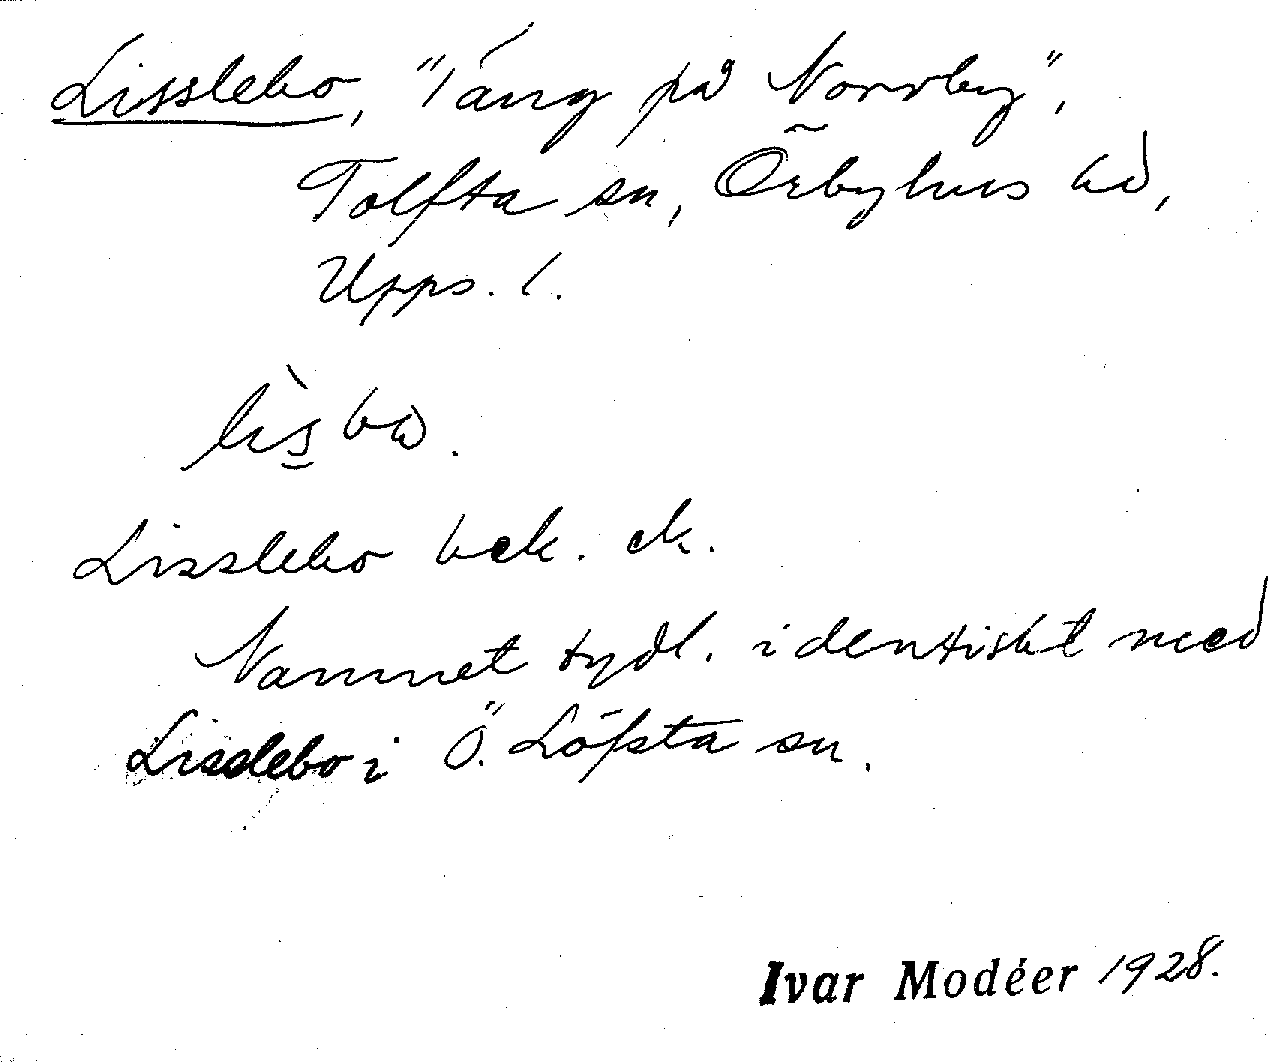 Lisslebo, "Täng på Norrby",
Tolfta sn, Örbyhus hd,
Upps. l.
Lisslebo bek. ek.
Namnet tydl. identiskt med
Lisslebo i Ö. Löfsta sn.
Ivar Modéer 1928.